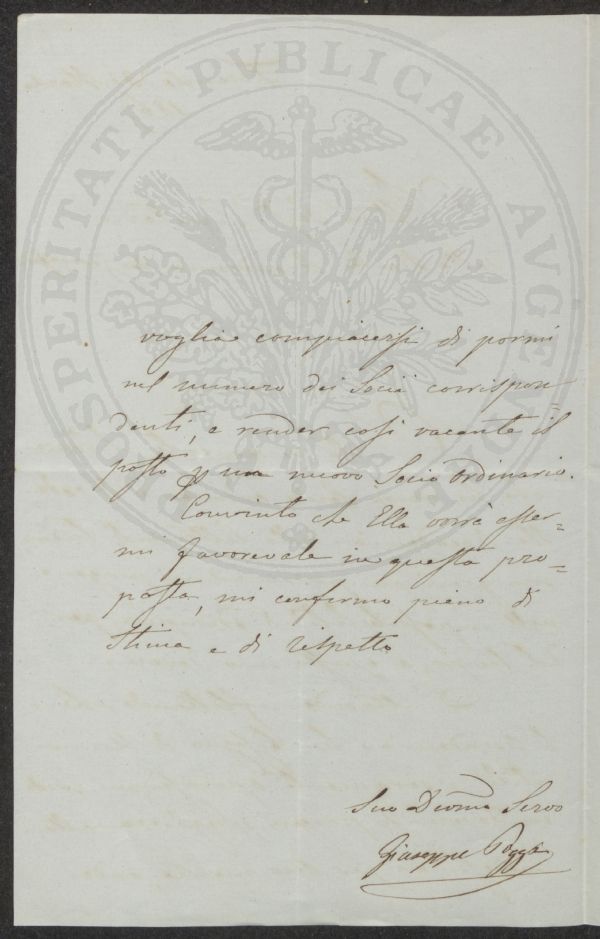 PROSPERITATI PVBLICAE AVGENDAE
voglia compiacersi di pormi
nel numero dei Socii corrispon=
denti, e render così vacante il
posto p un nuovo Socio ordinario.
Convinto che Ella vorrà esser=
mi favorevole in questa pro=
posta, mi confermo pieno di
Stima e di rispetto
Suo Devmo Servo
Giuseppe Poggi